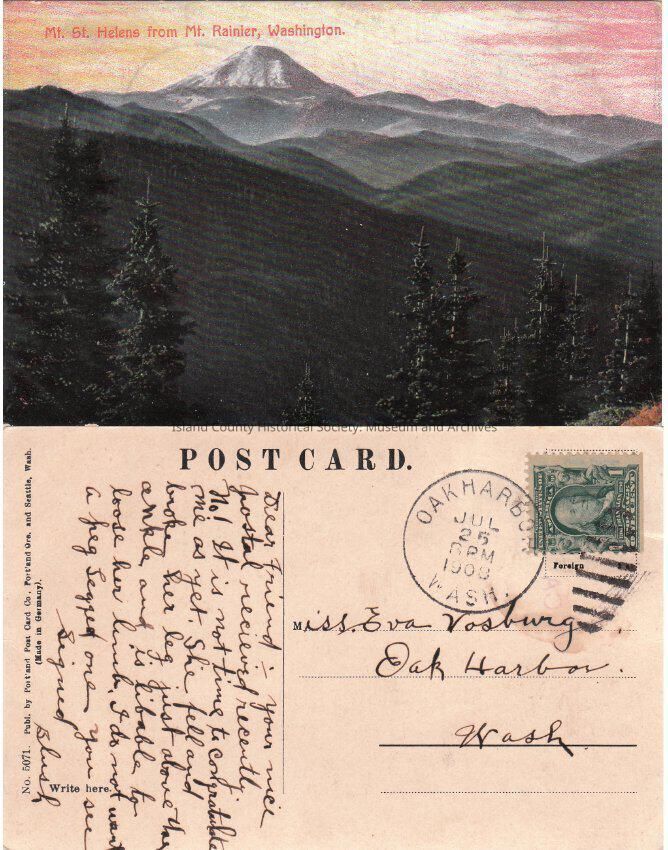 Mt. St. Helens from Mt. Rainier, Washington.
Island County Historical Society: Museum and Archives
POST CARD.
No. 5071. Publ. by Portland Post Card Co. Portland Ore. and Seattle, Wash.
(Made in Germany).
Dear Friend :- your nice
postal recieved recently.
No! It is not time to congratulate
me as yet. She fell and
broke her leg just above the
ankle and is libable to
loose her limb. I do not want
a peg legged one you see
Signed
Write here.
OAK HARBOR
JUL
25
PM
WASH.
Foreign
Miss. Eva Vosburg,
Oak Harbor.
Wash